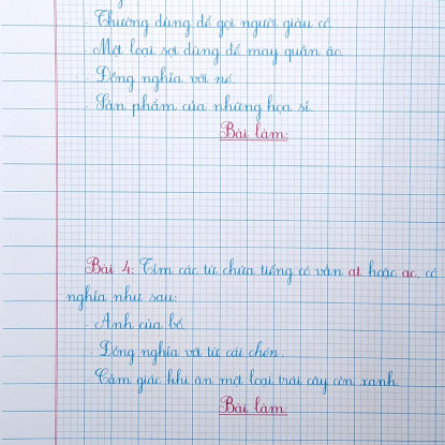 - Thường dùng để gọi người giàu có.
- Một loại sợi dùng để may quần áo.
- Đồng nghĩa với nó.
- Sản phẩm của những họa sĩ.
Bài làm:
Bài 4: Tìm các từ chứa tiếng có vần at hoặc ac, có
nghĩa như sau:
- Anh của bố.
- Đồng nghĩa với từ cái chén.
- Cảm giác khi ăn một loại trái cây còn xanh.
Bài làm: